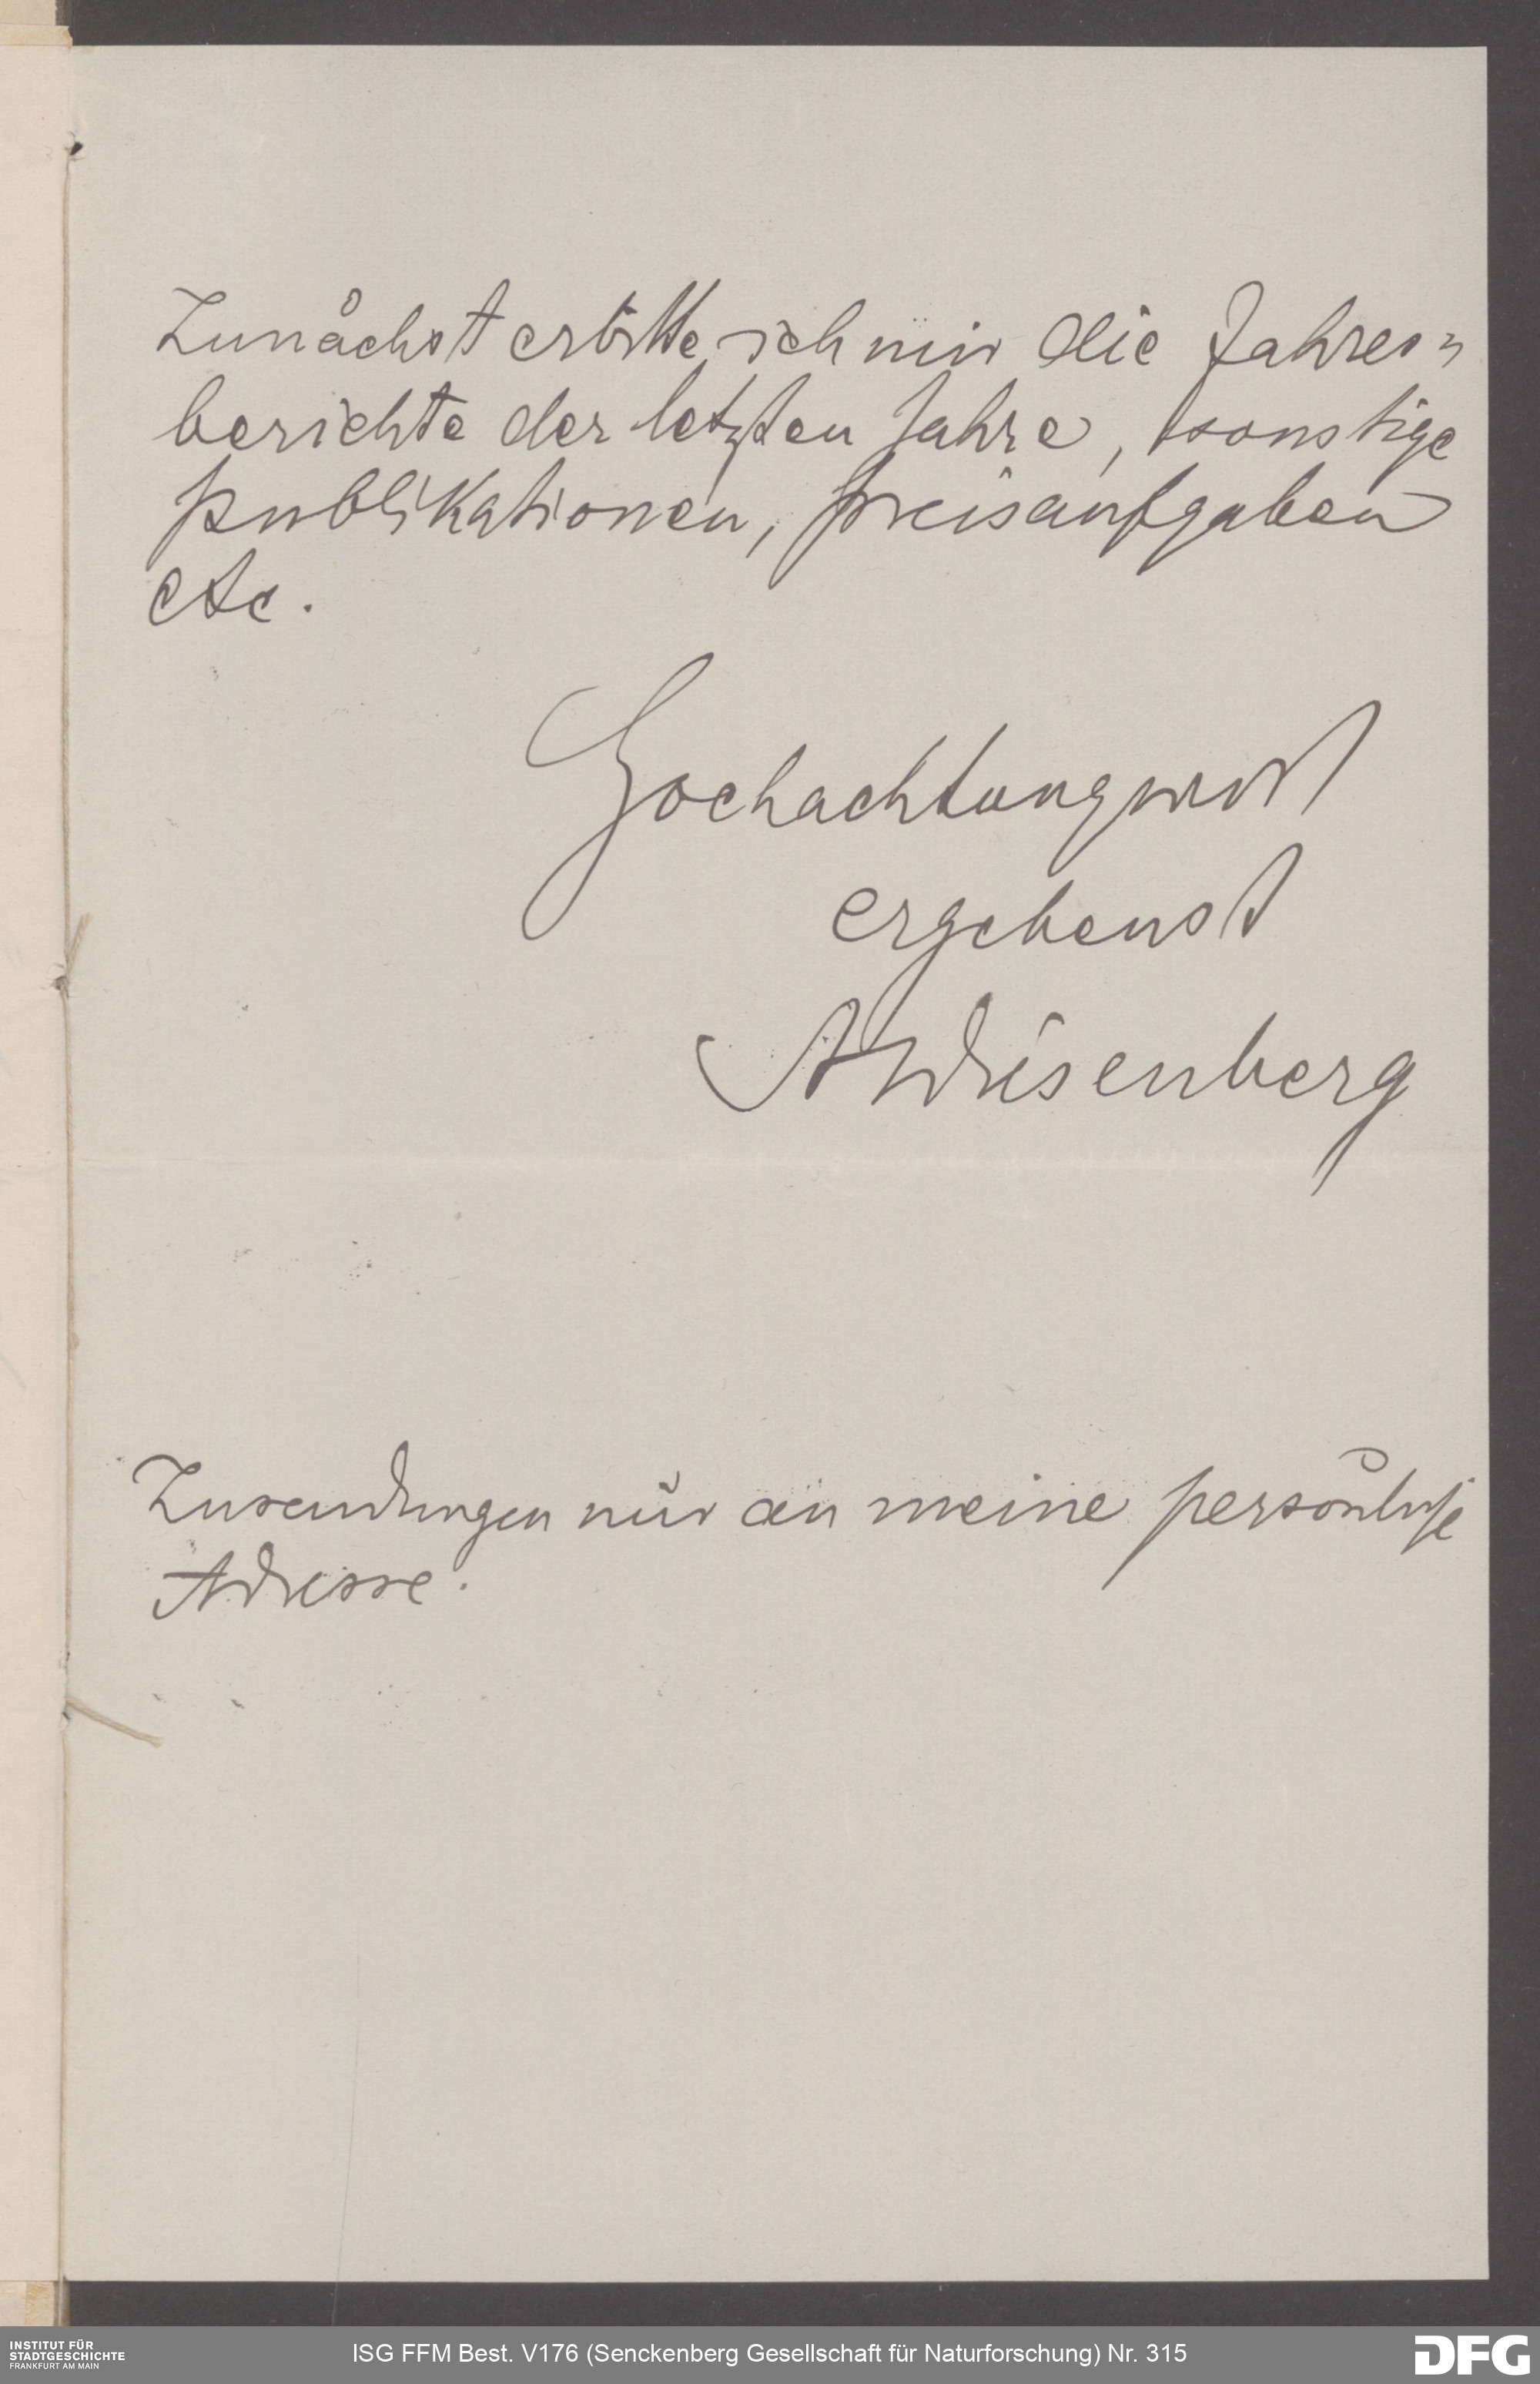 Zunächst erbitte ich mir die Jahres=
berichte der letzten Jahre, sonstige
Publikationen, Preisaufgaben
etc.
Hochachtungsvoll
ergebenst
Zusendungen nur an meine persönliche
Adresse.
INSTITUT FÜR
STADTGESCHICHTE
FRANKFURT AM MAIN
ISG FFM Best. V176 (Senckenberg Gesellschaft für Naturforschung) Nr. 315
DFG